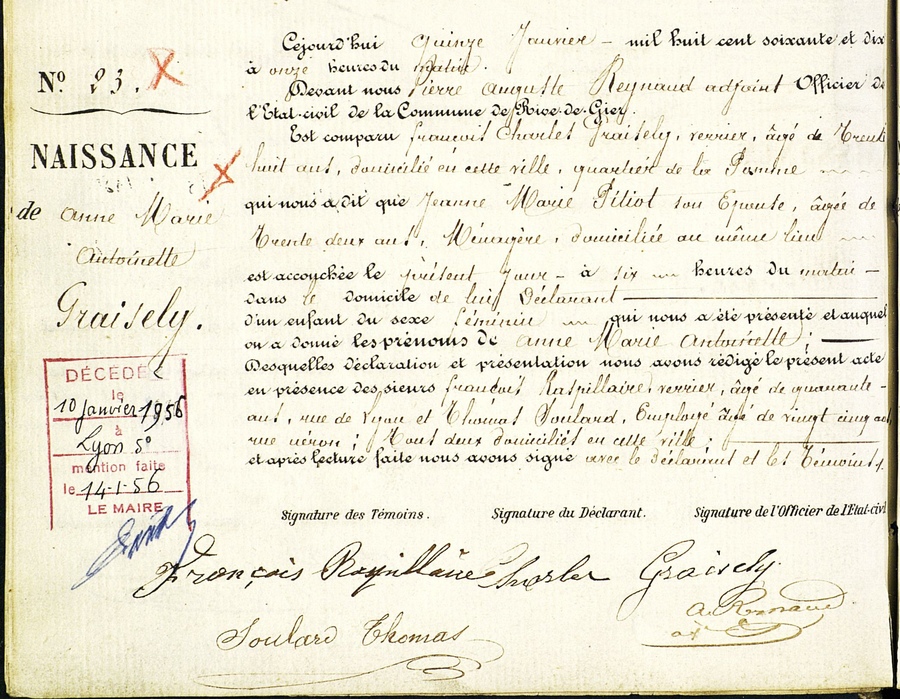 N.º 23.
NAISSANCE
de Anne Marie
Antoinette
Graisely.
DÉCÉDÉE
le
10 Janvier 1956
à
Lyon 5º
mention faite
le 14-1-56
LE MAIRE
Cejourd'hui quinze Janvier – mil huit cent soixante et dix
à onze heures du matin.
Devant nous Pierre Auguste Reynaud adjoint Officier de
l'Etat-civil de la Commune de Rive-de-Gier.
Est comparu françois Charles Graisely, verrier, âgé de Trente
huit ans, domicilié en cette ville, quartier de la Pomme
qui nous a dit que Jeanne Marie Péliot son Epouse, âgée de
Trente deux ans, Ménagère, domiciliée au même lieu
est accouchée le présent jour – à six heures du matin –
dans le domicile de lui Déclarant
d'un enfant du sexe féminin qui nous a été présenté et auquel
on a donné les prénoms de Anne Marie Antoinette ;
Desquelles déclaration et présentation nous avons rédigé le présent acte
en présence des sieurs françois Raspillaire, verrier, âgé de quarante-
ans, rue de Lyon et Thomas Soulard, Employé âgé de vingt cinq ans
rue néron ; Tous deux domiciliés en cette ville ;
et après lecture faite nous avons signé avec le Déclarant et les Témoins.
Signature des Témoins. Signature du Déclarant. Signature de l'Officier de l'Etat-civil
François Raspillaire Charles Graisely
A. Reynaud
Soulard Thomas